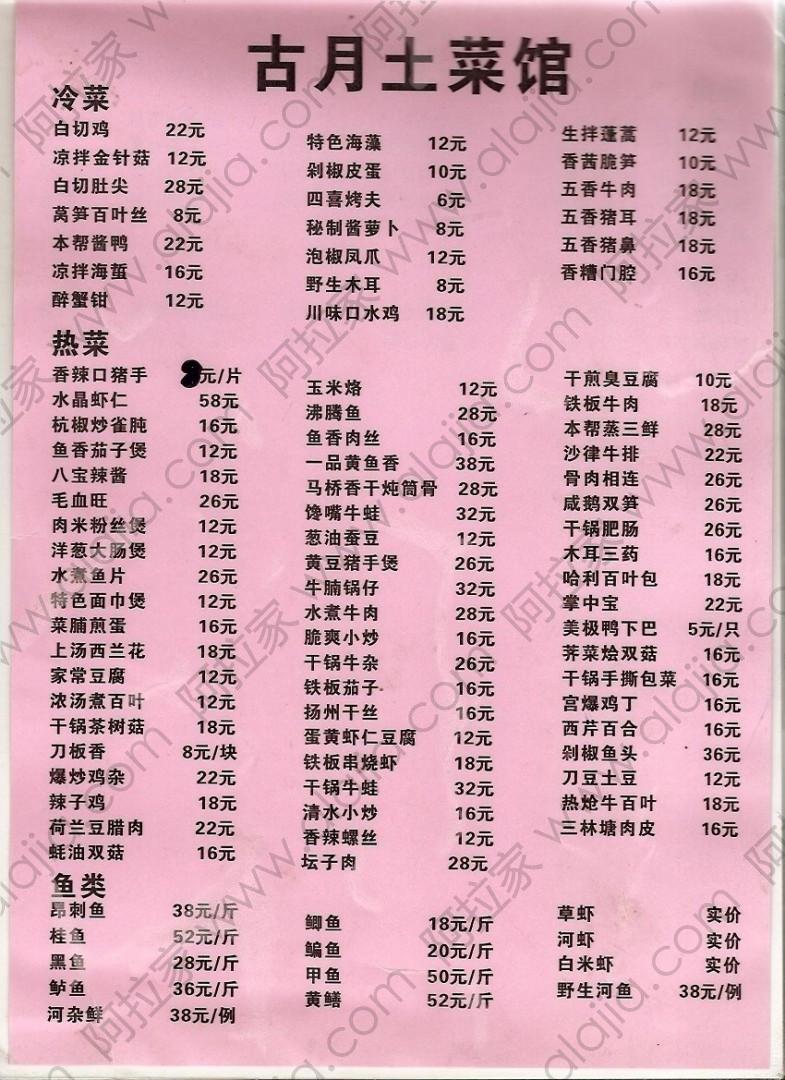 古月土菜馆
冷菜
白切鸡 22元
凉拌金针菇 12元
白切肚尖 28元
莴笋百叶丝 8元
本帮酱鸭 22元
凉拌海蜇 16元
醉蟹钳 12元
特色海藻 12元
剁椒皮蛋 10元
四喜烤夫 6元
秘制酱萝卜 8元
泡椒凤爪 12元
野生木耳 8元
川味口水鸡 18元
生拌蓬蒿 12元
香茜脆笋 10元
五香牛肉 18元
五香猪耳 18元
五香猪鼻 18元
香糟门腔 16元
热菜
香辣口猪手 元/片
水晶虾仁 58元
杭椒炒雀肫 16元
鱼香茄子煲 12元
八宝辣酱 18元
毛血旺 26元
肉米粉丝煲 12元
洋葱大肠煲 12元
水煮鱼片 26元
特色面巾煲 12元
菜脯煎蛋 16元
上汤西兰花 18元
家常豆腐 12元
浓汤煮百叶 12元
干锅茶树菇 18元
刀板香 8元/块
爆炒鸡杂 22元
辣子鸡 18元
荷兰豆腊肉 22元
蚝油双菇 16元
玉米烙 12元
沸腾鱼 28元
鱼香肉丝 16元
一品黄鱼香 38元
马桥香干炖筒骨 28元
馋嘴牛蛙 32元
葱油蚕豆 12元
黄豆猪手煲 26元
牛腩锅仔 32元
水煮牛肉 28元
脆爽小炒 16元
干锅牛杂 26元
铁板茄子 16元
扬州干丝 16元
蛋黄虾仁豆腐 12元
铁板串烧虾 18元
干锅牛蛙 32元
清水小炒 16元
香辣螺丝 12元
坛子肉 28元
干煎臭豆腐 10元
铁板牛肉 18元
本帮蒸三鲜 28元
沙律牛排 22元
骨肉相连 26元
咸鹅双笋 26元
干锅肥肠 26元
木耳三药 16元
哈利百叶包 18元
掌中宝 22元
美极鸭下巴 5元/只
荠菜烩双菇 16元
干锅手撕包菜 16元
宫爆鸡丁 16元
西芹百合 16元
剁椒鱼头 36元
刀豆土豆 12元
热炝牛百叶 18元
三林塘肉皮 16元
鱼类
昂刺鱼 38元/斤
桂鱼 52元/斤
黑鱼 28元/斤
鲈鱼 36元/斤
河杂鲜 38元/例
鲫鱼 18元/斤
鳊鱼 20元/斤
甲鱼 50元/斤
黄鳝 52元/斤
草虾 实价
河虾 实价
白米虾 实价
野生河鱼 38元/例
阿拉家 www.alajia.com